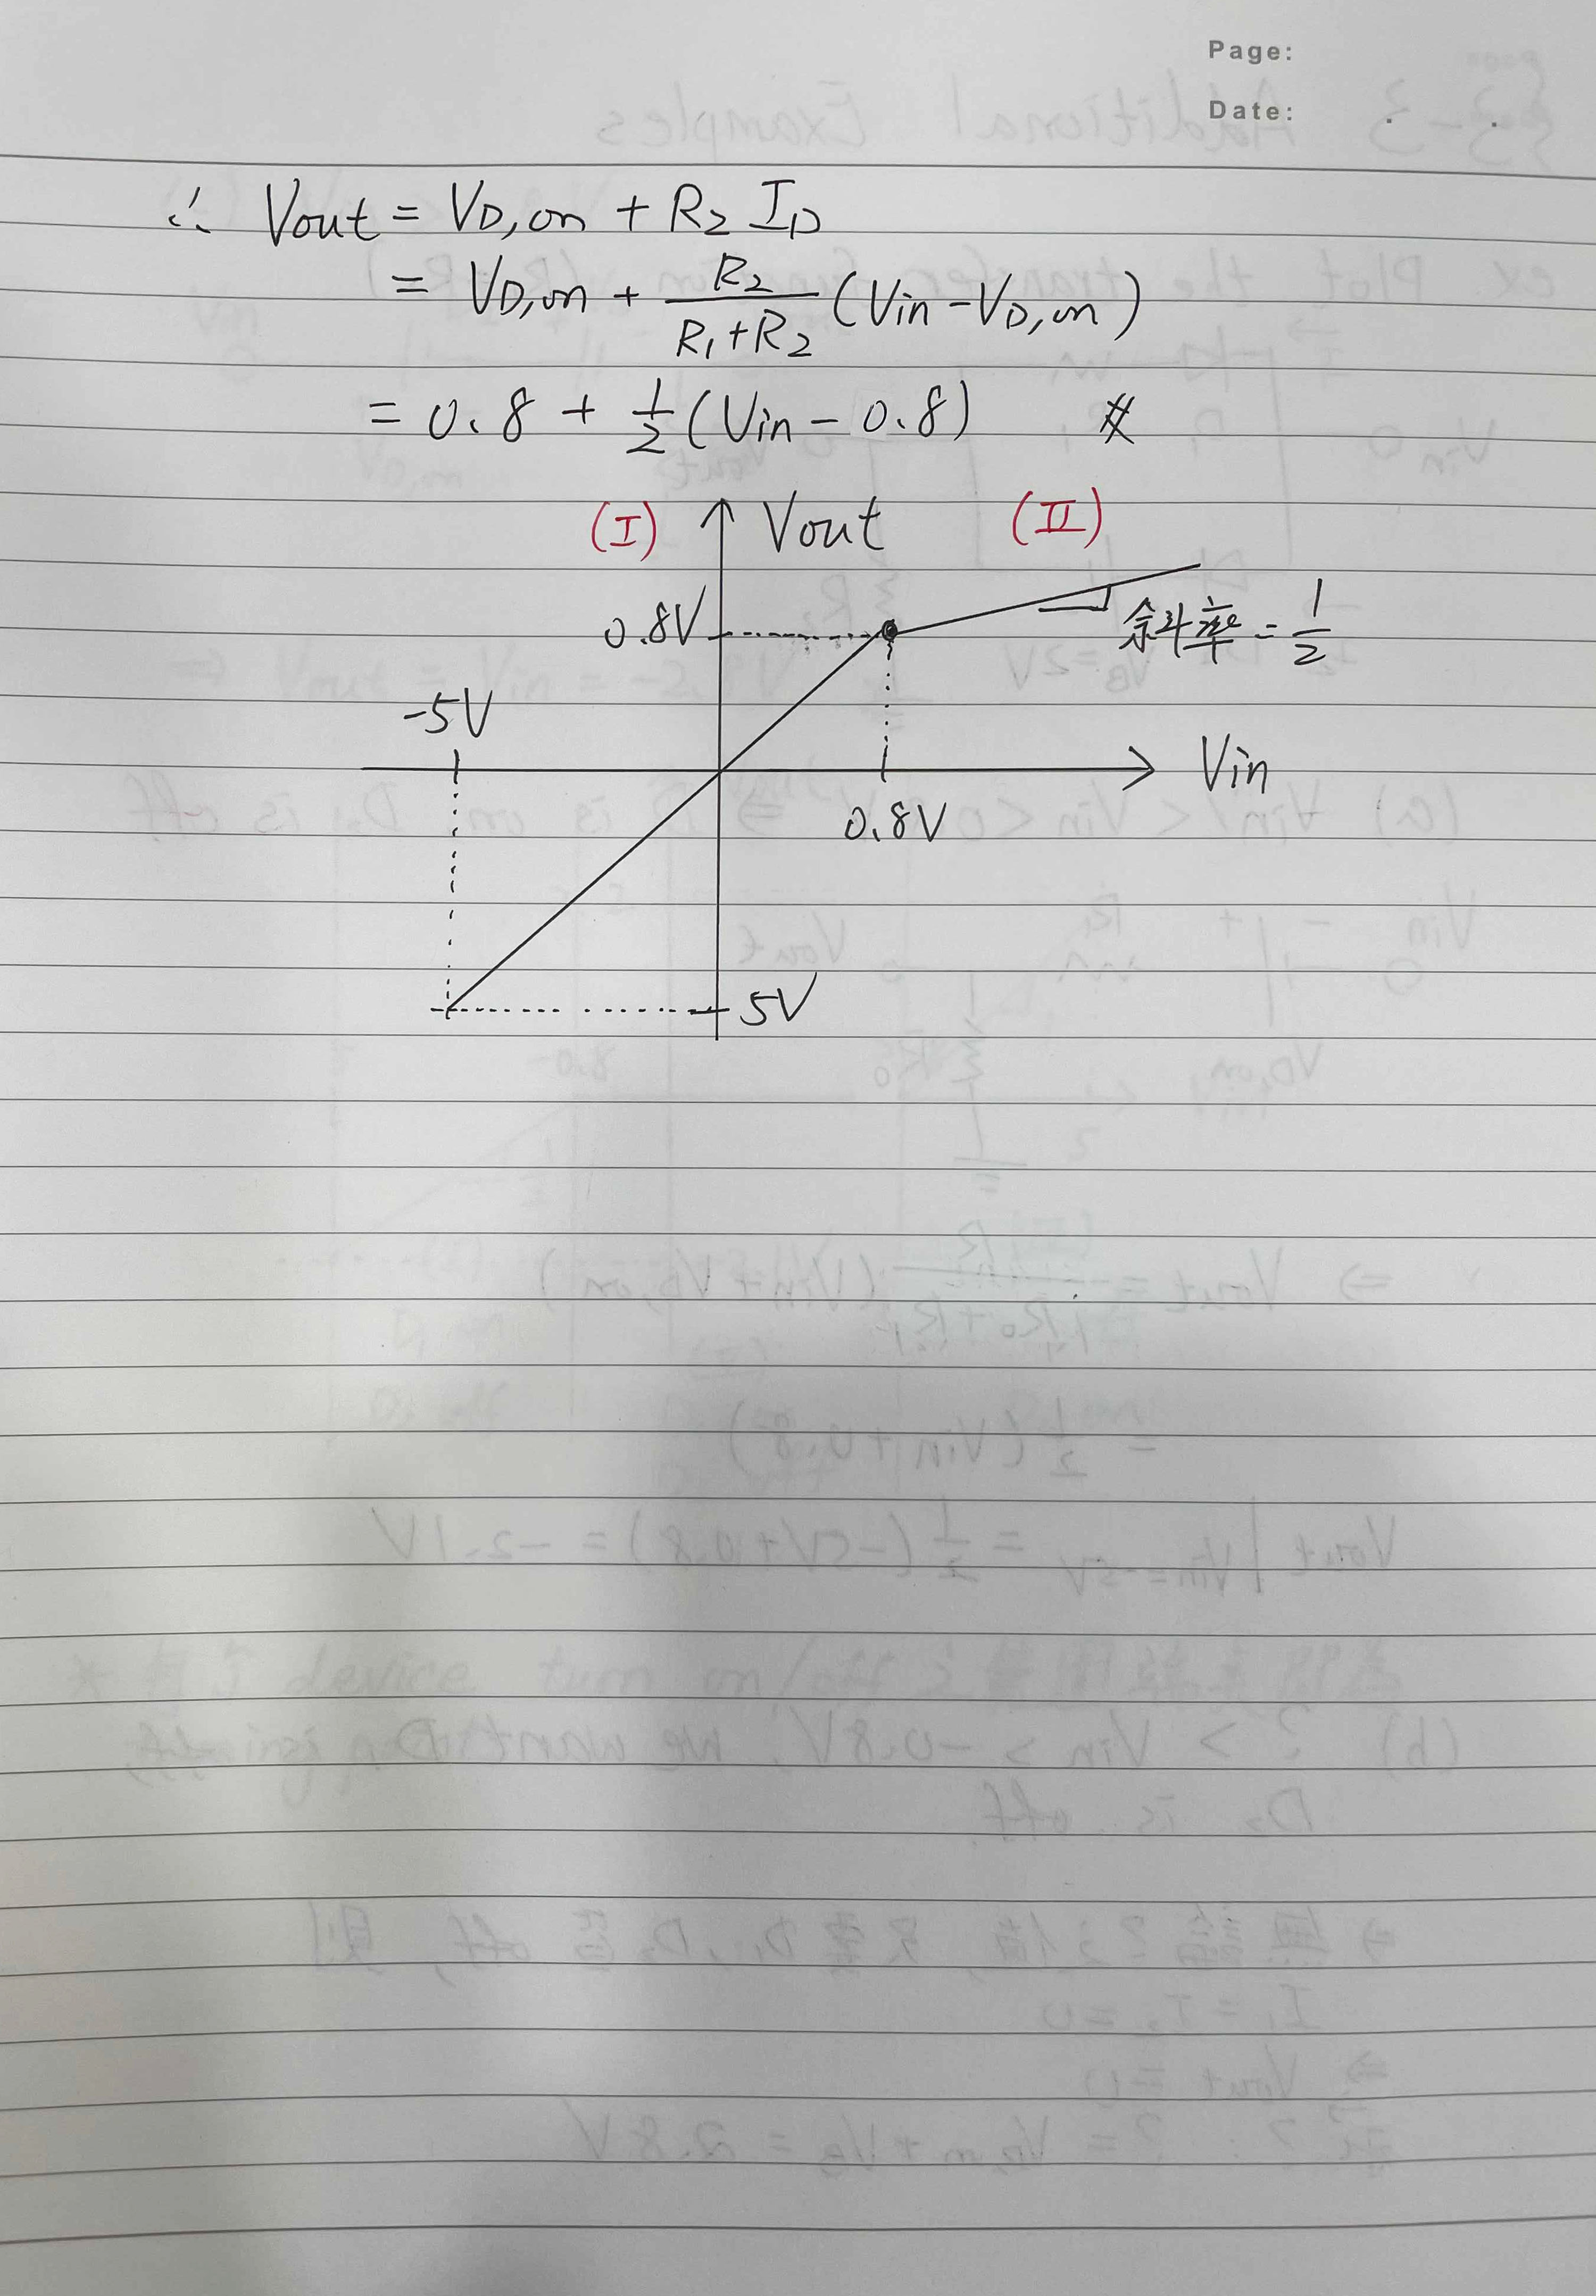 Page:
Date: . .
∴ Vout = VD,on + R2 ID
= VD,on + R2/(R1+R2) (Vin - VD,on)
= 0.8 + 1/2 (Vin - 0.8) ※
(I) Vout (II)
0.8V 斜率 = 1/2
-5V
Vin
0.8V
5V